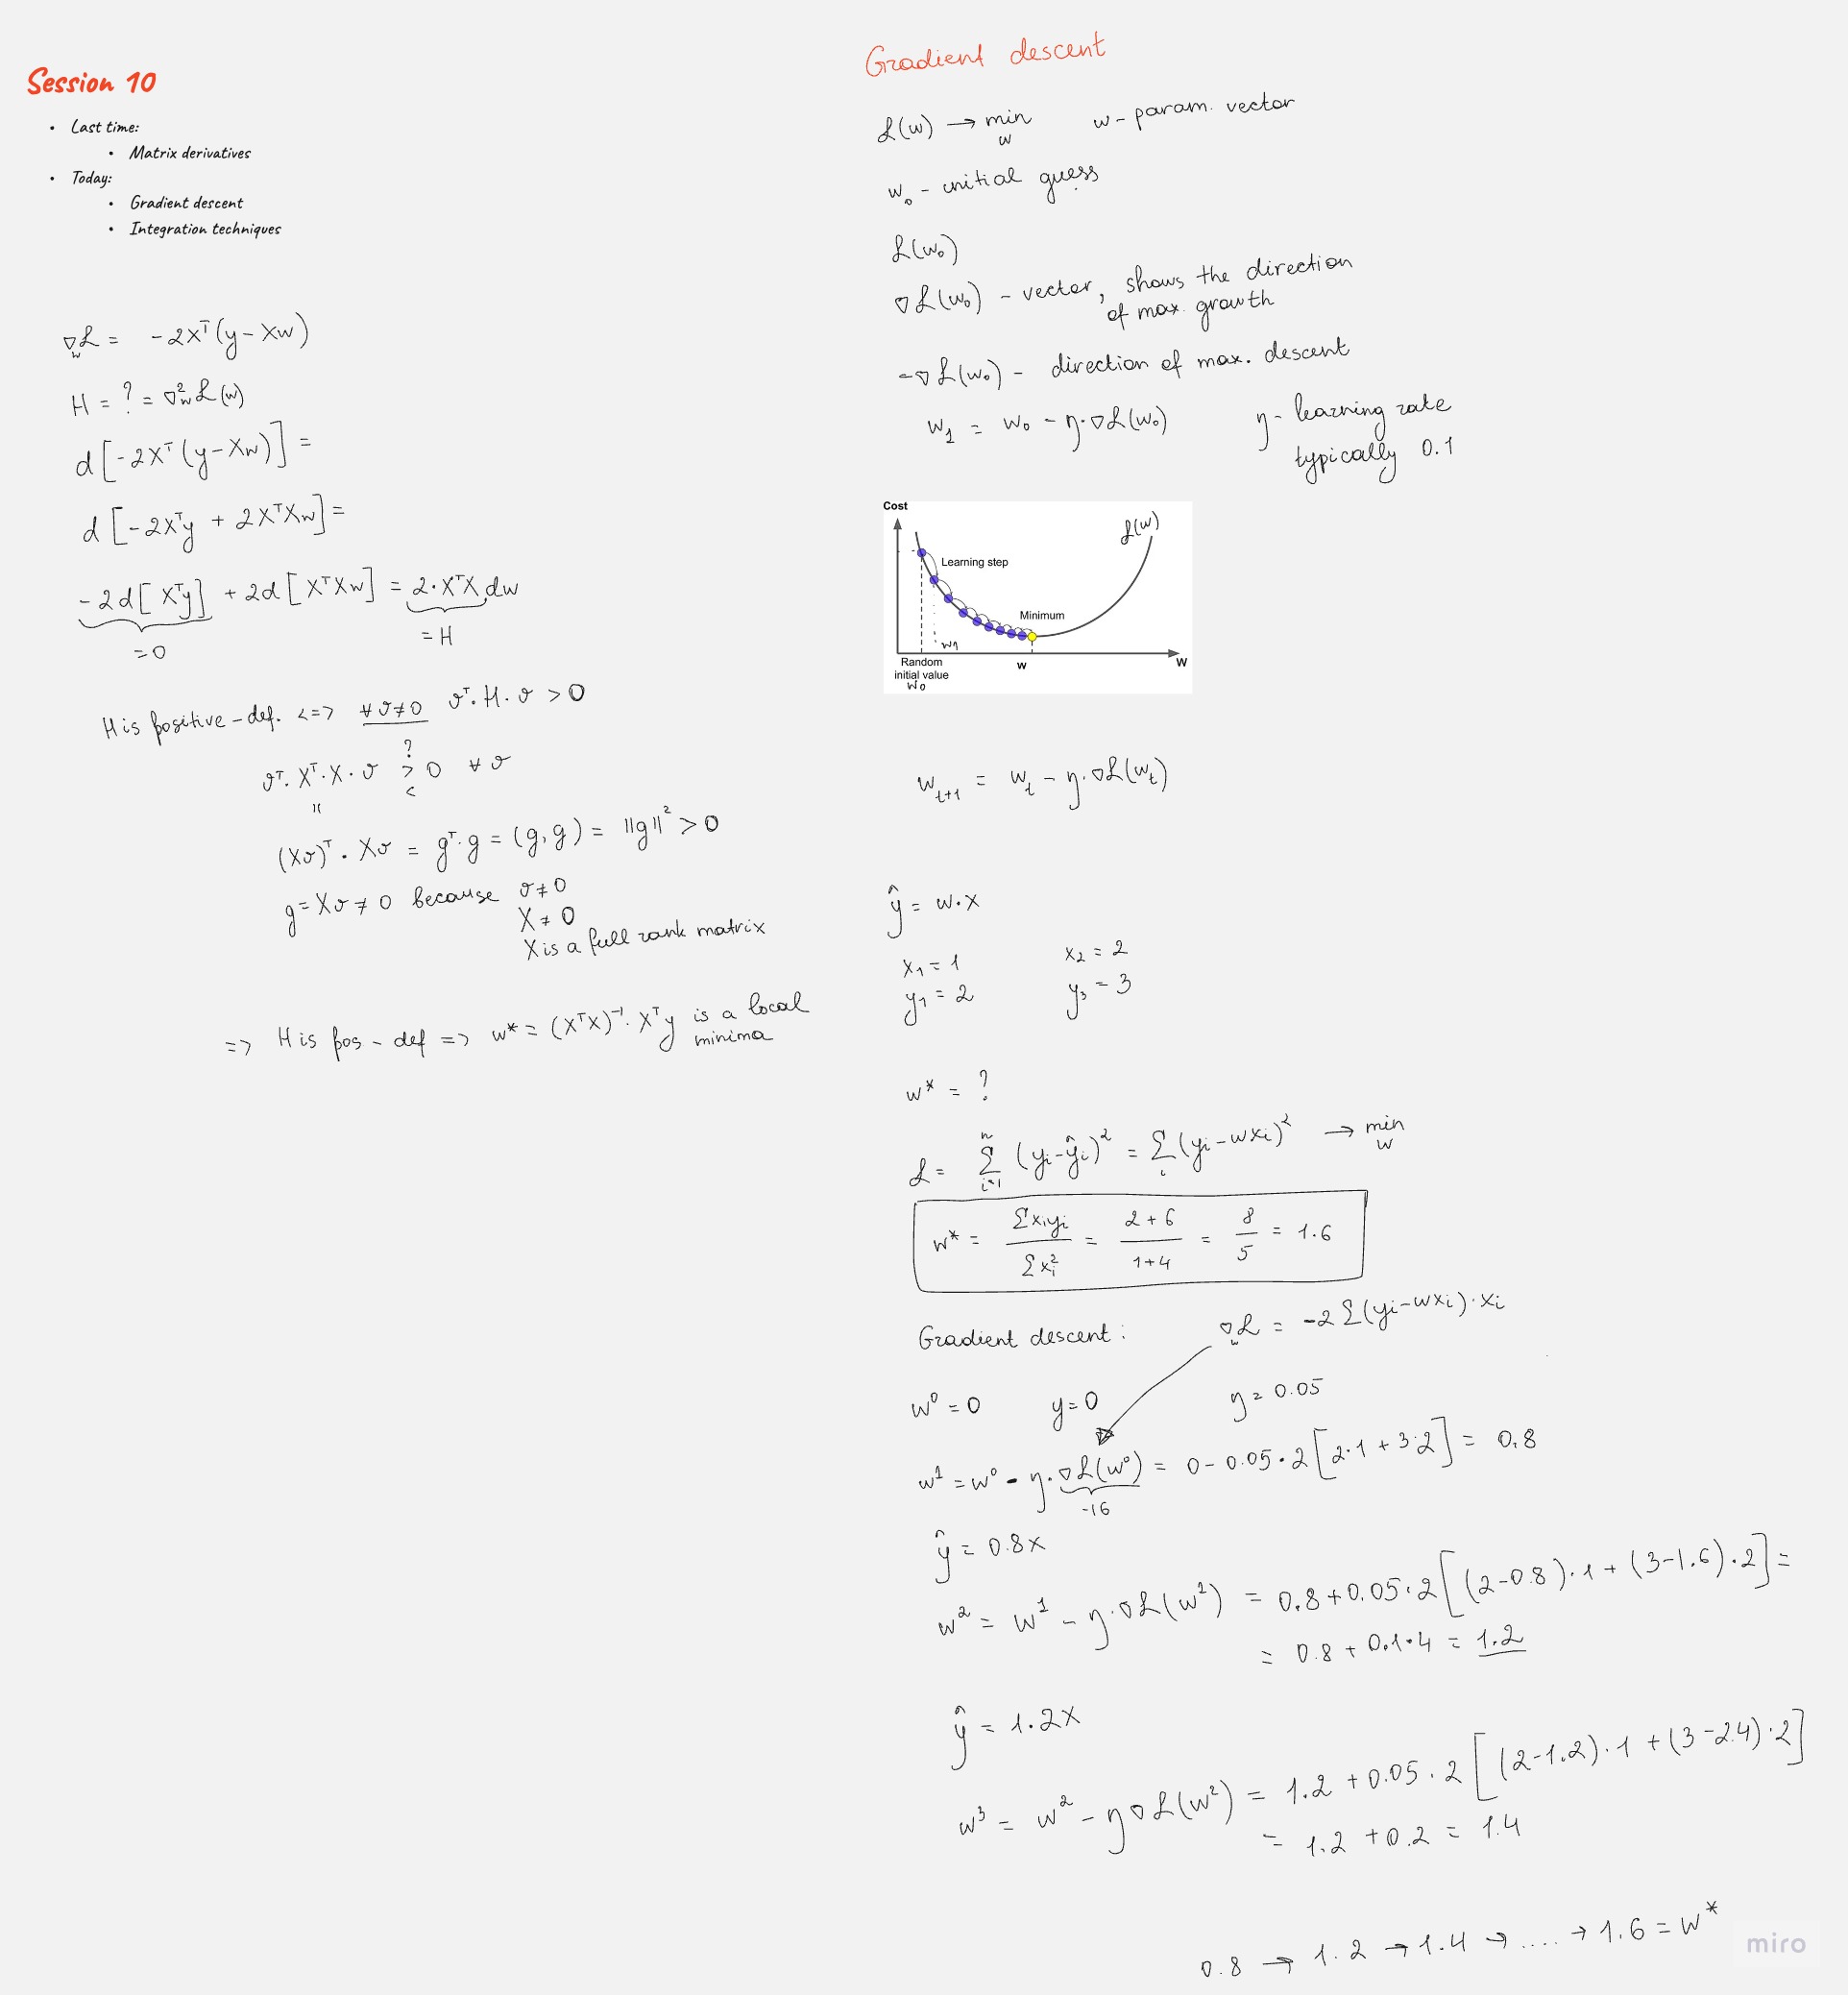 Session 10
• Last time:
• Matrix derivatives
• Today:
• Gradient descent
• Integration techniques
∇_w ℒ = -2Xᵀ(y - Xw)
H = ? = ∇²_w ℒ(w)
d[-2Xᵀ(y-Xw)] =
d[-2Xᵀy + 2XᵀXw] =
-2d[Xᵀy] + 2d[XᵀXw] = 2·XᵀX dw
=0
=H
H is positive-def. <=> ∀v≠0 vᵀ·H·v > 0
?
vᵀ·Xᵀ·X·v > 0 ∀v
<
=
(Xv)ᵀ·Xv = gᵀ·g = (g,g) = ||g||² > 0
g = Xv ≠ 0 because v≠0
X ≠ 0
X is a full rank matrix
=> H is pos-def => w* = (XᵀX)⁻¹·Xᵀy is a local
minima
Gradient descent
ℒ(w) → min_w w - param. vector
w₀ - initial guess
ℒ(w₀)
∇ℒ(w₀) - vector, shows the direction
of max. growth
-∇ℒ(w₀) - direction of max. descent
w₁ = w₀ - η·∇ℒ(w₀) η - learning rate
typically 0.1
Cost
ℒ(w)
Learning step
Minimum
w₁
Random
initial value
w₀
w
W
w_{t+1} = w_t - η·∇ℒ(w_t)
ŷ = w·x
x₁ = 1 x₂ = 2
y₁ = 2 y₃ = 3
w* = ?
ℒ = Σ_{i=1}^{n} (yᵢ-ŷᵢ)² = Σ_i (yᵢ-wxᵢ)² → min_w
w* = Σxᵢyᵢ / Σxᵢ² = (2+6)/(1+4) = 8/5 = 1.6
Gradient descent: ∇_w ℒ = -2Σ(yᵢ-wxᵢ)·xᵢ
w⁰ = 0 y = 0 η = 0.05
w¹ = w⁰ - η·∇ℒ(w⁰) = 0-0.05·2[2·1 + 3·2] = 0.8
-16
ŷ = 0.8x
w² = w¹ - η·∇ℒ(w²) = 0.8+0.05·2[(2-0.8)·1 + (3-1.6)·2] =
= 0.8 + 0.1·4 = 1.2
ŷ = 1.2x
w³ = w² - η∇ℒ(w²) = 1.2 + 0.05·2[(2-1.2)·1 + (3-2.4)·2]
= 1.2 + 0.2 = 1.4
0.8 → 1.2 → 1.4 → .... → 1.6 = w*
miro